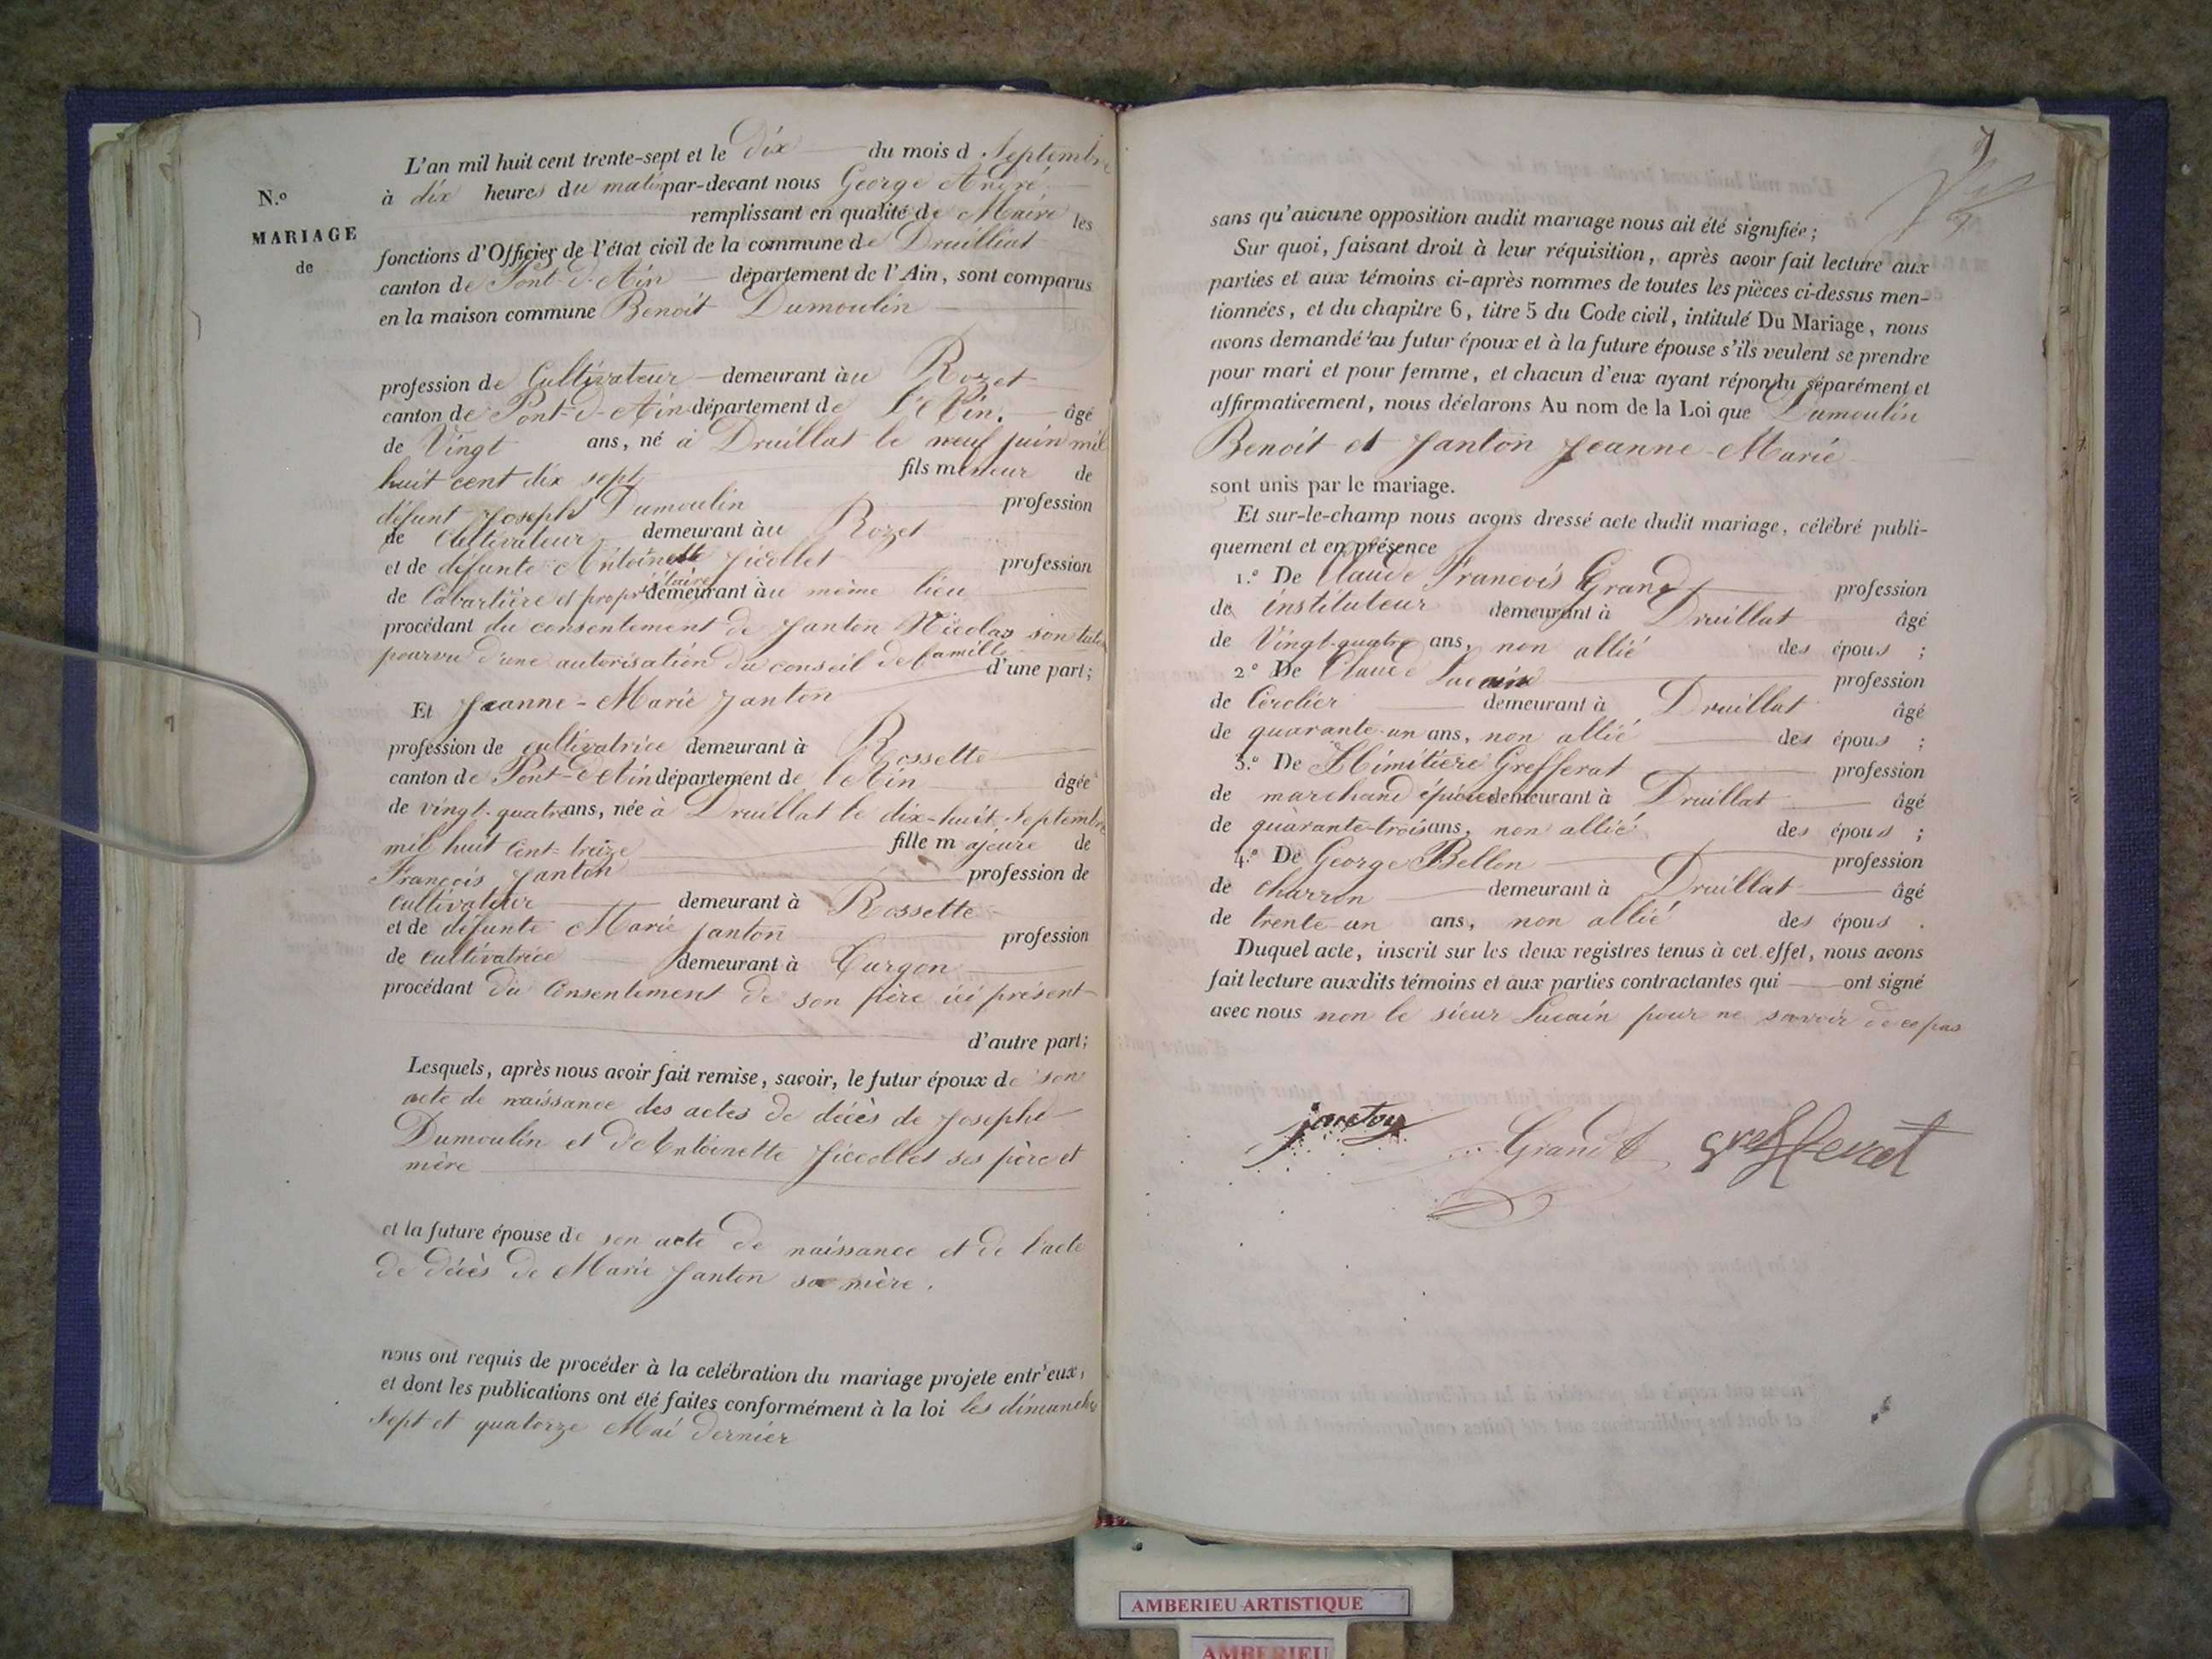 N.º
MARIAGE
de
L'an mil huit cent trente-sept et le dix du mois d Septembre
à dix heures du matin par-devant nous George André
remplissant en qualité de Maire les
fonctions d'Officier de l'état civil de la commune de Druilliat
canton de Pont-d'Ain département de l'Ain, sont comparus
en la maison commune Benoit Dumoulin
profession de Cultivateur demeurant àu Rozet
canton de Pont-d-Ain département de l'Ain. âgé
de Vingt ans, né à Druillat le neuf juin mil
huit cent dix sept fils mineur de
défunt Joseph Dumoulin profession
de Cultivateur demeurant àu Rozet
et de défunte Antoinette profession
de Cabartière et propriétaire demeurant àu même lieu
procédant du consentement de Janton Nicolas son tut
pourvu d'une autorisation du conseil de famille d'une part;
Et Jeanne-Marie Janton
profession de cultivatrice demeurant à Rossette
canton de Pont-d'Ain département de l'Ain âgée
de vingt-quatre ans, née à Druillat le dix-huit Septembre
mil huit Cent-treize fille majeure de
François Janton profession de
Cultivateur demeurant à Rossette
et de défunte Marie Janton profession
de cultivatrice demeurant à Turgon
procédant du Consentement de son père ici présent
d'autre part;
Lesquels, après nous avoir fait remise, savoir, le futur époux de son
acte de naissance des actes de décès de Josephe
Dumoulin et d'Antoinette ses père et
mère
et la future épouse de son acte de naissance et de l'acte
de décès de Marie Janton sa mère.
nous ont requis de procéder à la celébration du mariage projete entr'eux,
et dont les publications ont été faites conformément à la loi les dimanches
sept et quatorze Mai dernier
sans qu'aucune opposition audit mariage nous ait été signifiée;
Sur quoi, faisant droit à leur réquisition, après avoir fait lecture aux
parties et aux témoins ci-après nommes de toutes les pièces ci-dessus men-
tionnées, et du chapitre 6, titre 5 du Code civil, intitulé Du Mariage, nous
avons demandé au futur époux et à la future épouse s'ils veulent se prendre
pour mari et pour femme, et chacun d'eux ayant répondu séparément et
affirmativement, nous déclarons Au nom de la Loi que Dumoulin
Benoit et Janton Jeanne-Marie
sont unis par le mariage.
Et sur-le-champ nous avons dressé acte dudit mariage, célébré publi-
quement et en présence
1.º De Claude Francois Grand profession
de instituteur demeurant à Druillat âgé
de Vingt-quatre ans, non allié des épous ;
2º De Claude Lucain profession
de Cerclier demeurant à Druillat âgé
de quarante-un ans, non allié des épous ;
3.º De Grefferat profession
de marchand épicier demeurant à Druillat âgé
de quarante-trois ans, non allié des épous ;
4.º De George Bellon profession
de charron demeurant à Druillat âgé
de trente-un ans, non allié des épous .
Duquel acte, inscrit sur les deux registres tenus à cet effet, nous avons
fait lecture auxdits témoins et aux parties contractantes qui ont signé
avec nous non le sieur Lucain pour ne savoir de ce pas
janton Grand Grefferat
AMBERIEU ARTISTIQUE
AMBERIEU